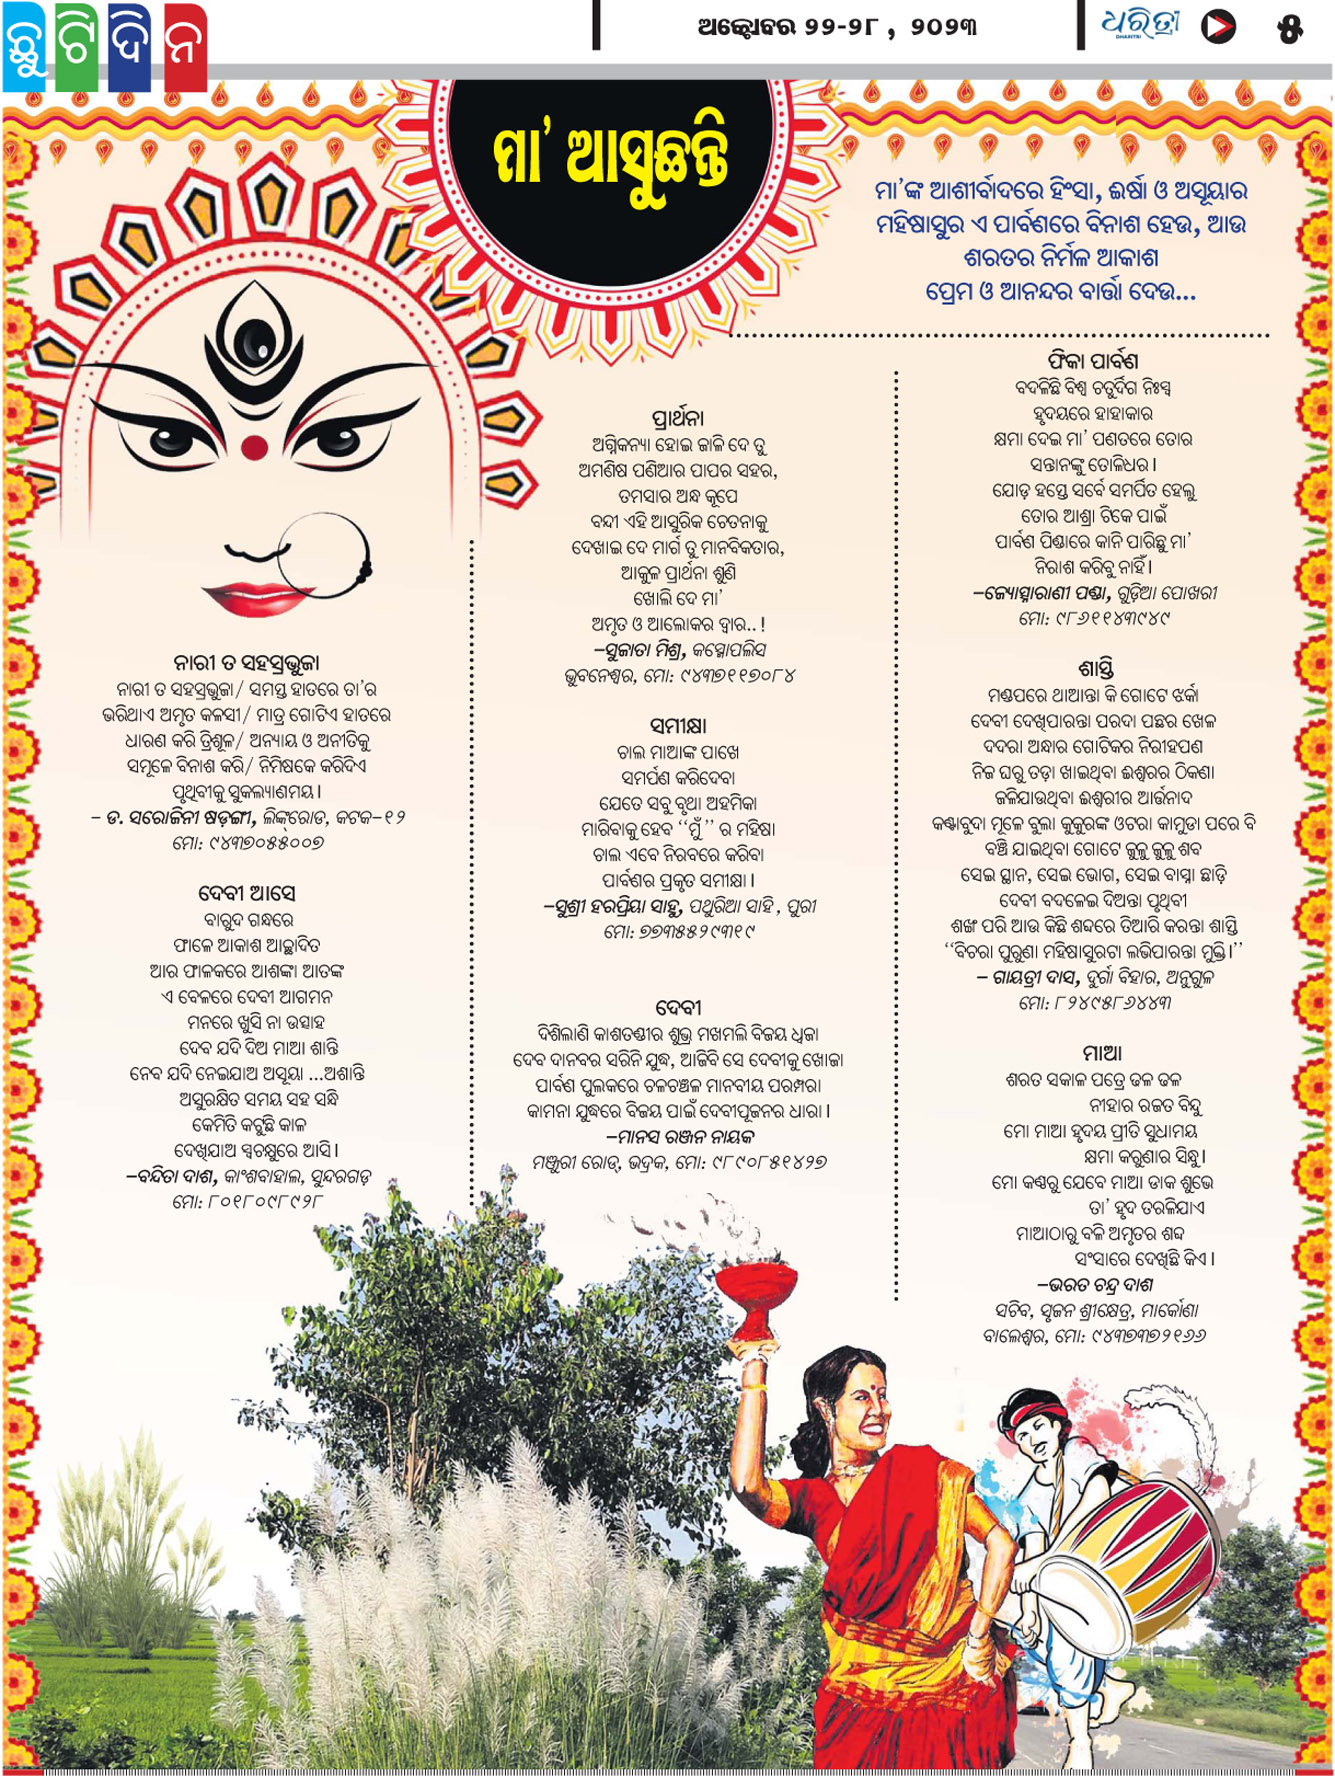 ଛୁଟିଦିନ
ଅକ୍ଟୋବର ୨୨-୨୮ , ୨୦୨୩
ଧରିତ୍ରୀ
DHARITRI
୫
ମା' ଆସୁଛନ୍ତି
ମା'ଙ୍କ ଆଶୀର୍ବାଦରେ ହିଂସା, ଈର୍ଷା ଓ ଅସୂୟାର
ମହିଷାସୁର ଏ ପାର୍ବଣରେ ବିନାଶ ହେଉ, ଆଉ
ଶରତର ନିର୍ମଳ ଆକାଶ
ପ୍ରେମ ଓ ଆନନ୍ଦର ବାର୍ତ୍ତା ଦେଉ...
ନାରୀ ତ ସହସ୍ରଭୁଜା
ନାରୀ ତ ସହସ୍ରଭୁଜା/ ସମସ୍ତ ହାତରେ ତା'ର
ଭରିଥାଏ ଅମୃତ କଳସୀ/ ମାତ୍ର ଗୋଟିଏ ହାତରେ
ଧାରଣ କରି ତ୍ରିଶୂଳ/ ଅନ୍ୟାୟ ଓ ଅନୀତିକୁ
ସମୂଳେ ବିନାଶ କରି/ ନିମିଷକେ କରିଦିଏ
ପୃଥିବୀକୁ ସୁକଲ୍ୟାଣମୟ।
– ଡ. ସରୋଜିନୀ ଷଡ଼ଙ୍ଗୀ, ଲିଙ୍କ୍‌ରୋଡ, କଟକ–୧୨
ମୋ: ୯୪୩୭୦୫୫୦୦୭
ଦେବୀ ଆସେ
ବାରୁଦ ଗନ୍ଧରେ
ଫାଳେ ଆକାଶ ଆଚ୍ଛାଦିତ
ଆର ଫାଳକରେ ଆଶଙ୍କା ଆତଙ୍କ
ଏ ବେଳରେ ଦେବୀ ଆଗମନ
ମନରେ ଖୁସି ନା ଉତ୍ସାହ
ଦେବ ଯଦି ଦିଅ ମାଆ ଶାନ୍ତି
ନେବ ଯଦି ନେଇଯାଅ ଅସୂୟା ...ଅଶାନ୍ତି
ଅସୁରକ୍ଷିତ ସମୟ ସହ ସନ୍ଧି
କେମିତି କଟୁଛି କାଳ
ଦେଖିଯାଅ ସ୍ୱଚକ୍ଷୁରେ ଆସି।
–ବନ୍ଦିତା ଦାଶ, କାଂଶବାହାଲ, ସୁନ୍ଦରଗଡ଼
ମୋ: ୮୦୧୮୦୯୮୯୨୮
ପ୍ରାର୍ଥନା
ଅଗ୍ନିକନ୍ୟା ହୋଇ ଜାଳି ଦେ ତୁ
ଅମଣିଷ ପଣିଆର ପାପର ସହର,
ତମସାର ଅନ୍ଧ କୂପେ
ବନ୍ଦୀ ଏହି ଆସୁରିକ ଚେତନାକୁ
ଦେଖାଇ ଦେ ମାର୍ଗ ତୁ ମାନବିକତାର,
ଆକୁଳ ପ୍ରାର୍ଥନା ଶୁଣି
ଖୋଲି ଦେ ମା'
ଅମୃତ ଓ ଆଲୋକର ଦ୍ୱାର..!
–ସୁଜାତା ମିଶ୍ର, କସ୍ମୋପଲିସ
ଭୁବନେଶ୍ୱର, ମୋ: ୯୪୩୭୧୧୭୦୮୪
ସମୀକ୍ଷା
ଚାଲ ମାଆଙ୍କ ପାଖେ
ସମର୍ପଣ କରିଦେବା
ଯେତେ ସବୁ ବୃଥା ଅହମିକା
ମାରିବାକୁ ହେବ ‘‘ମୁଁ’’ ର ମହିଷା
ଚାଲ ଏବେ ନିରବରେ କରିବା
ପାର୍ବଣର ପ୍ରକୃତ ସମୀକ୍ଷା।
–ସୁଶ୍ରୀ ହରପ୍ରିୟା ସାହୁ, ପଥୁରିଆ ସାହି, ପୁରୀ
ମୋ: ୭୭୩୫୫୨୯୩୧୯
ଦେବୀ
ଦିଶିଲାଣି କାଶତଣ୍ଡୀର ଶୁଭ୍ର ମଖମଲି ବିଜୟ ଧ୍ୱଜା
ଦେବ ଦାନବର ସରିନି ଯୁଦ୍ଧ, ଆଜିବି ସେ ଦେବୀକୁ ଖୋଜା
ପାର୍ବଣ ପୁଲକରେ ଚଳଚଞ୍ଚଳ ମାନବୀୟ ପରମ୍ପରା
କାମନା ଯୁଦ୍ଧରେ ବିଜୟ ପାଇଁ ଦେବୀପୂଜନର ଧାରା।
–ମାନସ ରଞ୍ଜନ ନାୟକ
ମଞ୍ଜୁରୀ ରୋଡ୍, ଭଦ୍ରକ, ମୋ: ୯୮୯୦୮୫୧୪୨୭
ଫିକା ପାର୍ବଣ
ବଦଳିଛି ବିଶ୍ୱ ଚତୁର୍ଦିଗ ନିଃସ୍ୱ
ହୃଦୟରେ ହାହାକାର
କ୍ଷମା ଦେଇ ମା' ପଣତରେ ତୋର
ସନ୍ତାନଙ୍କୁ ତୋଳିଧର।
ଯୋଡ଼ ହସ୍ତେ ସର୍ବେ ସମର୍ପିତ ହେଲୁ
ତୋର ଆଶ୍ରା ଟିକେ ପାଇଁ
ପାର୍ବଣ ପିଣ୍ଡାରେ କାନି ପାରିଛୁ ମା'
ନିରାଶ କରିବୁ ନାହିଁ।
–ଜ୍ୟୋତ୍ସ୍ନାରାଣୀ ପଣ୍ଡା, ଗୁଡ଼ିଆ ପୋଖରୀ
ମୋ: ୯୮୬୧୧୪୩୯୪୯
ଶାସ୍ତି
ମଣ୍ଡପରେ ଥାଆନ୍ତା କି ଗୋଟେ ଝର୍କା
ଦେବୀ ଦେଖିପାରନ୍ତା ପରଦା ପଛର ଖେଳ
ଦଦରା ଅନ୍ଧାର ଗୋଟିକର ନିରୀହପଣ
ନିଜ ଘରୁ ତଡ଼ା ଖାଇଥିବା ଈଶ୍ୱରର ଠିକଣା
ଜଳିଯାଉଥିବା ଈଶ୍ୱରୀର ଆର୍ତ୍ତନାଦ
କଣ୍ଟାବୁଦା ମୂଳେ ବୁଲା କୁକୁରଙ୍କ ଓଟରା କାମୁଡା ପରେ ବି
ବଞ୍ଚି ଯାଇଥିବା ଗୋଟେ ଜୁଳୁ ଜୁଳୁ ଶବ
ସେଇ ସ୍ଥାନ, ସେଇ ଭୋଗ, ସେଇ ବାସ୍ନା ଛାଡ଼ି
ଦେବୀ ବଦଳେଇ ଦିଅନ୍ତା ପୃଥିବୀ
ଶଙ୍ଖ ପରି ଆଉ କିଛି ଶବ୍ଦରେ ତିଆରି କରନ୍ତା ଶାସ୍ତି
‘‘ବିଚରା ପୁରୁଣା ମହିଷାସୁରଟା ଲଭିପାରନ୍ତା ମୁକ୍ତି।’’
– ଗାୟତ୍ରୀ ଦାସ, ଦୁର୍ଗା ବିହାର, ଅନୁଗୁଳ
ମୋ: ୮୨୪୯୫୮୬୪୪୩
ମାଆ
ଶରତ ସକାଳ ପତ୍ରେ ଢଳ ଢଳ
ନୀହାର ରଜତ ବିନ୍ଦୁ
ମୋ ମାଆ ହୃଦୟ ପ୍ରୀତି ସୁଧାମୟ
କ୍ଷମା କରୁଣାର ସିନ୍ଧୁ।
ମୋ କଣ୍ଠରୁ ଯେବେ ମାଆ ଡାକ ଶୁଭେ
ତା' ହୃଦ ତରଳିଯାଏ
ମାଆଠାରୁ ବଳି ଅମୃତର ଶବ୍ଦ
ସଂସାରେ ଦେଖିଛି କିଏ।
–ଭରତ ଚନ୍ଦ୍ର ଦାଶ
ସଚିବ, ସୃଜନ ଶ୍ରୀକ୍ଷେତ୍ର, ମାର୍କୋଣା
ବାଲେଶ୍ୱର, ମୋ: ୯୪୩୭୩୭୨୧୬୬